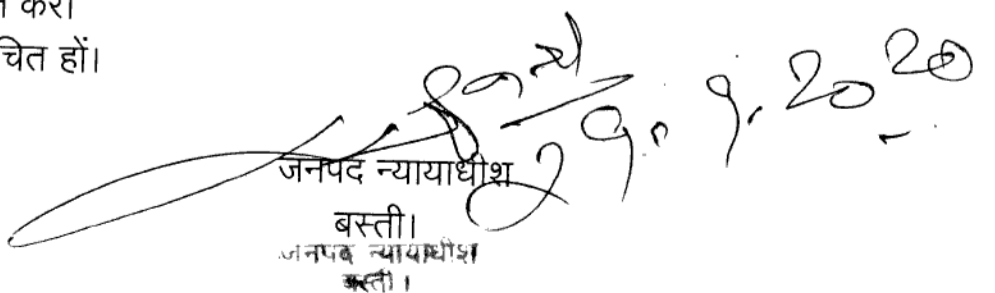 करें।
चित हों।
29.9.2020
जनपद न्यायाधीश
बस्ती।
जनपद न्यायाधीश
बस्ती।